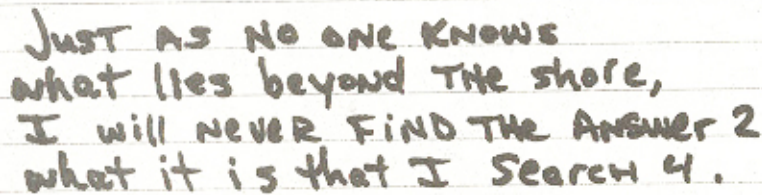 Just as no one knows
what lies beyond the shore,
I will never find the answer 2
what it is that I search 4.